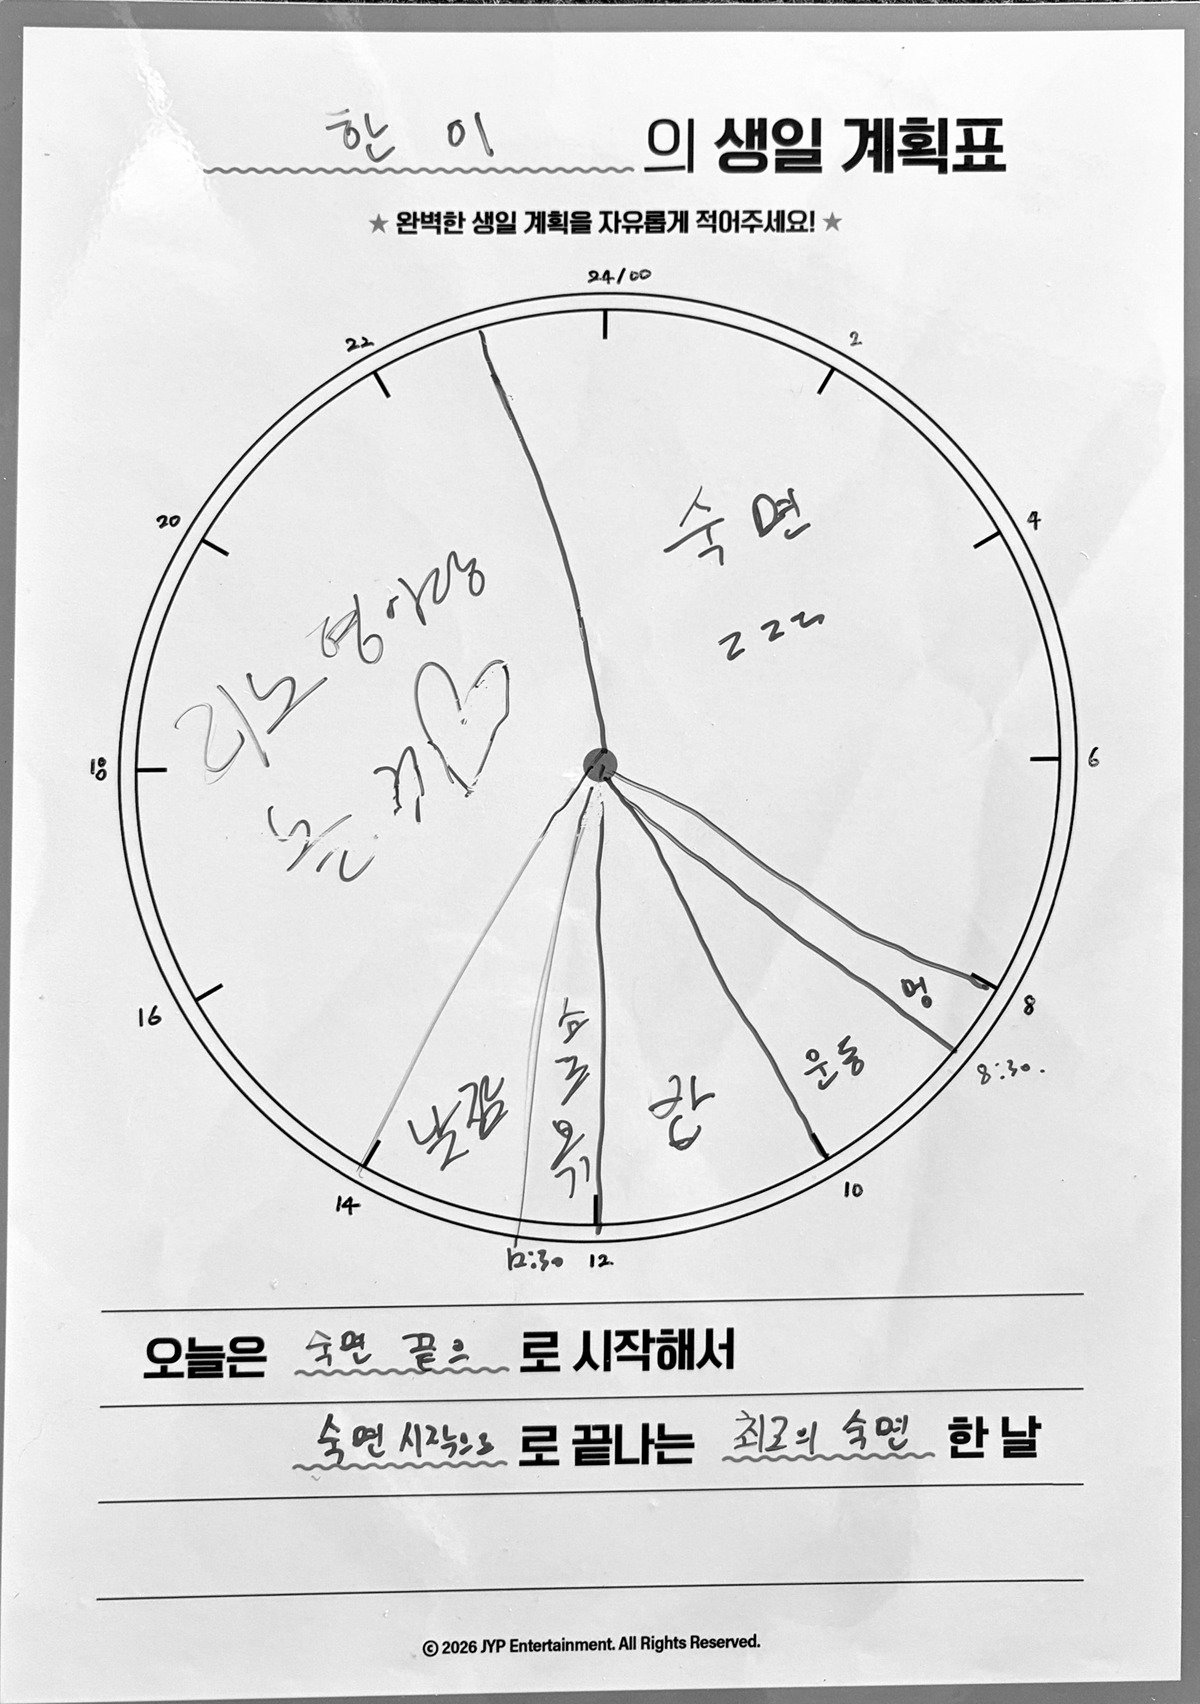 한이의 생일 계획표
★ 완벽한 생일 계획을 자유롭게 적어주세요! ★
24/00
22
2
20
4
숙면
zzz
리노 형아랑
노는 것♡
18
6
16
8
멍
8:30.
운동
합
쇼로목
낮잠
10
14
12:30
12
오늘은 숙면 끝으로 시작해서
숙면 시작으로로 끝나는 최고의 숙면 한 날
© 2026 JYP Entertainment. All Rights Reserved.